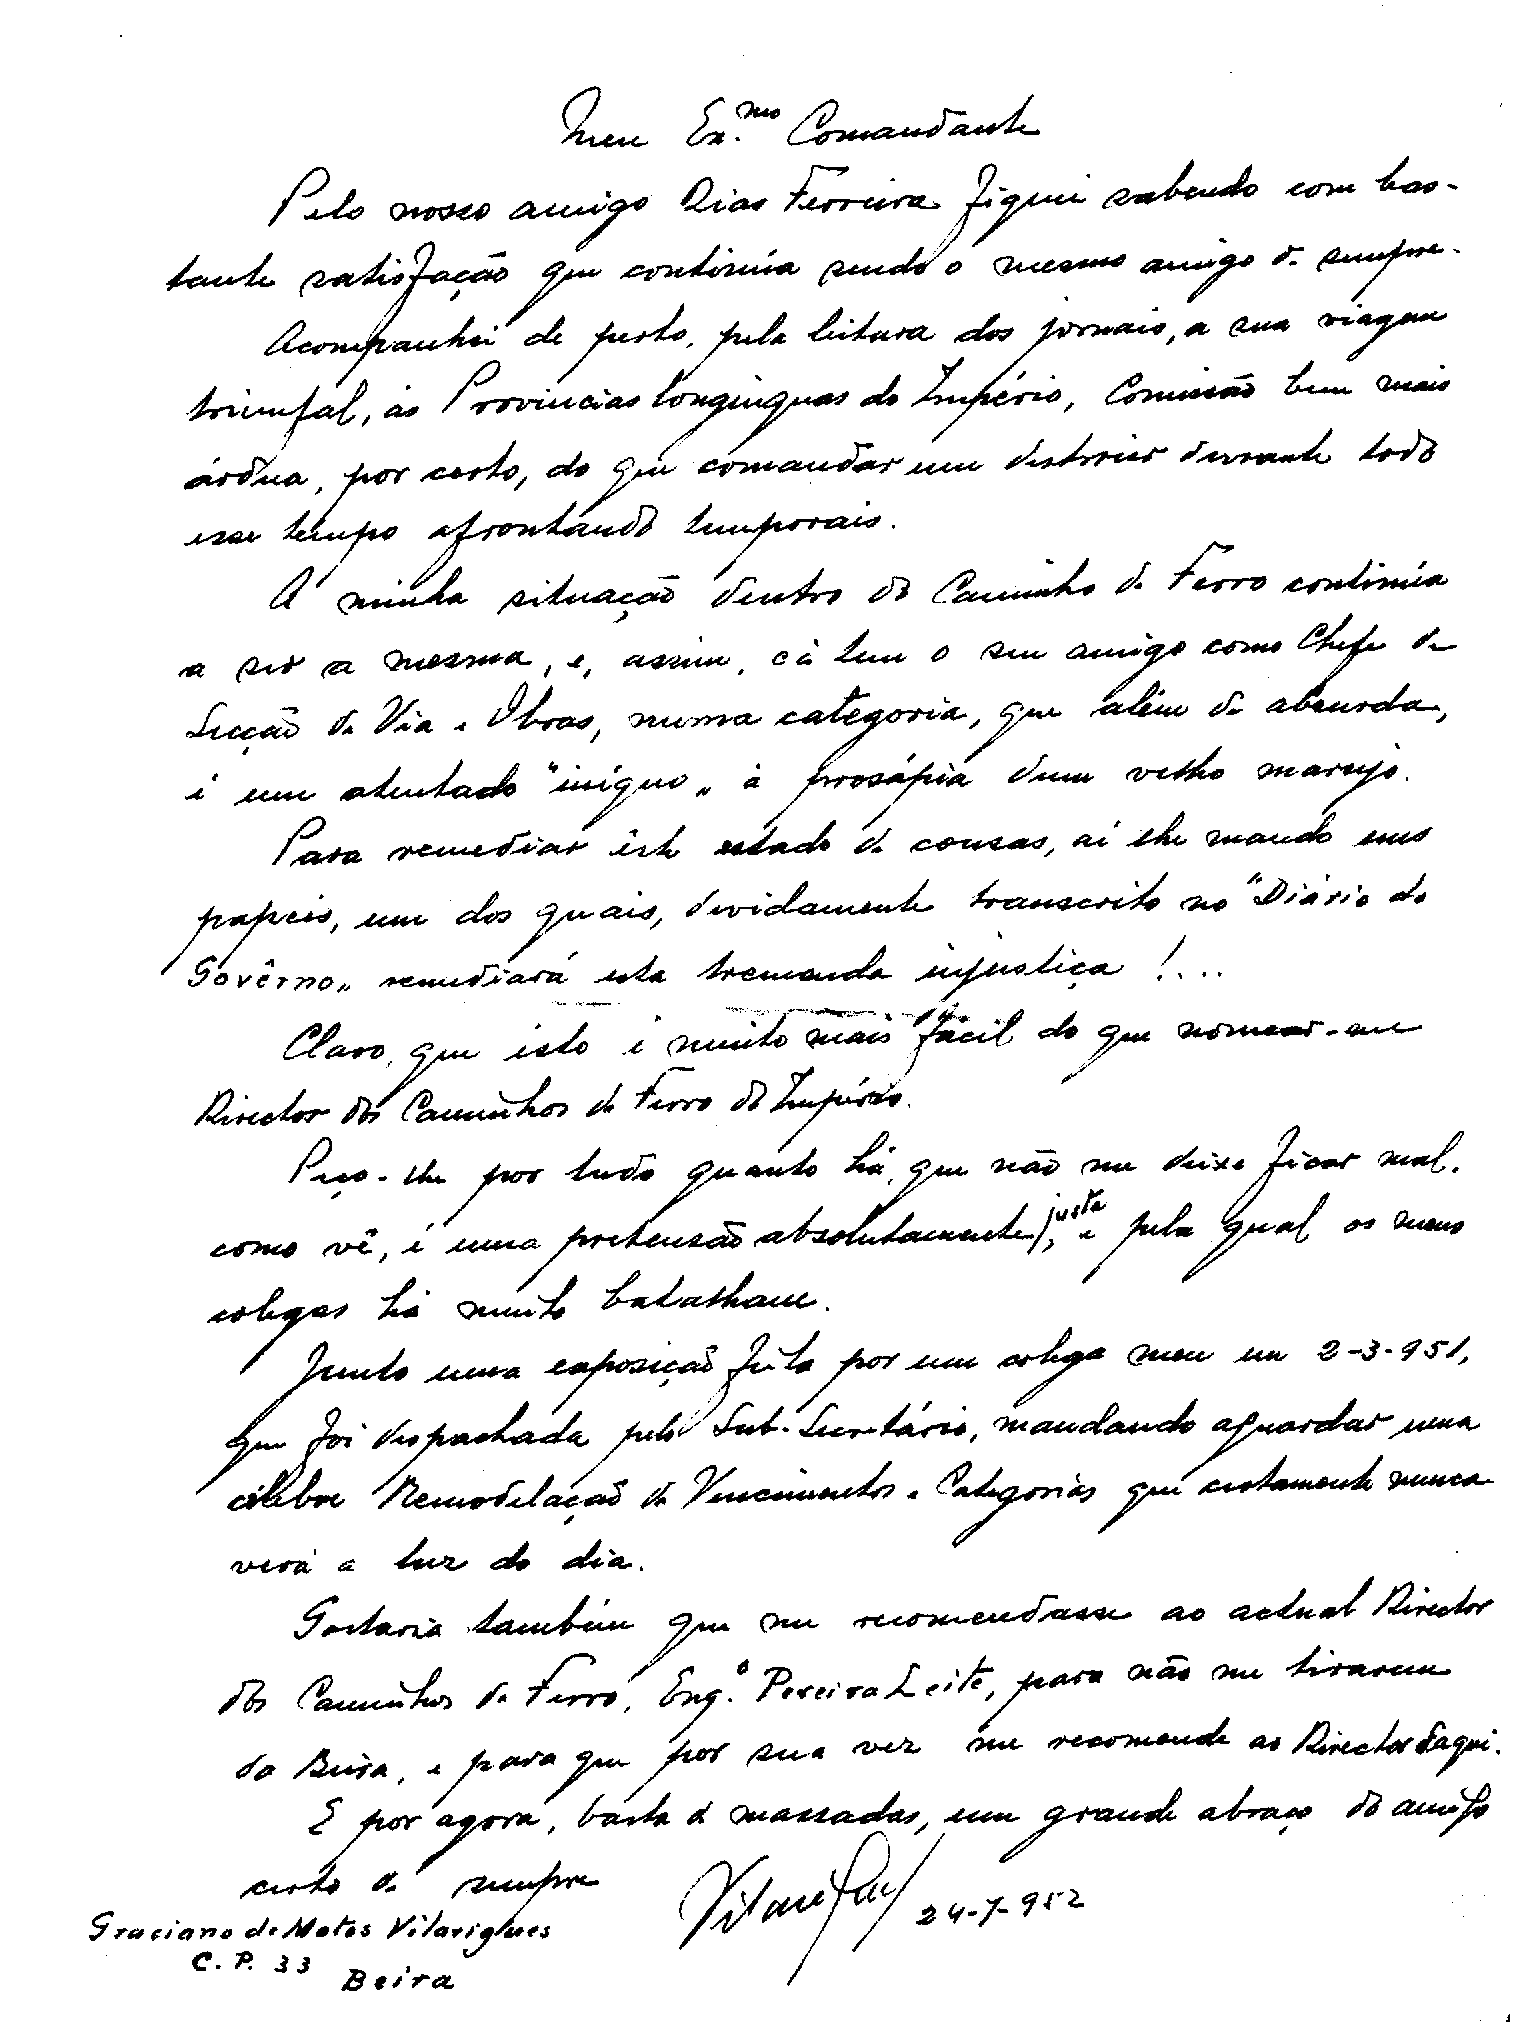 Meu Ex.mo Comandante
Pelo nosso amigo Dias Ferreira fiquei sabendo com bas-
tante satisfação que continúa sendo o mesmo amigo de sempre.
Acompanhei de perto, pela leitura dos jornais, a sua viagem
triunfal, ás Provincias longinquas do Império, Comissão bem mais
árdua, por certo, do que comandar um destroier durante todo
esse tempo afrontando temporais.
A minha situação dentro do Caminho de Ferro continúa
a ser a mesma, e, assim, cá tem o seu amigo como Chefe de
Secção de Via e Obras, numa categoria, que além de absurda,
é um atentado "iníquo„ á prosápia dum velho marujo.
Para remediar êste estado de cousas, aí lhe mando uns
papeis, um dos quais, devidamente transcrito no "Diário do
Govêrno„ remediará esta tremenda injustiça !...
Claro, que isto é muito mais fácil do que nomear-me
Director dos Caminhos de Ferro do Império.
Peço-lhe por tudo quanto há, que não me deixe ficar mal.
como vê, é uma pretensão absolutamente justa, e pela qual os meus
colegas há muito batalham.
Junto uma exposição feita por um colega meu em 2-3-951,
que foi despachada pelo Sub-Secretário, mandando aguardar uma
célebre Remodelação de Vencimentos e Categorias que certamente nunca
verá a luz do dia.
Gostaria também que me recomendasse ao actual Director
dos Caminhos de Ferro, Eng.º Pereira Leite, para não me tirarem
da Beira, e para que por sua vez me recomende ao Director daqui.
E por agora, basta de massadas, um grande abraço do amigo
certo de sempre
Vilarigues 24-7-952
Graciano de Matos Vilarigues
C. P. 33
Beira